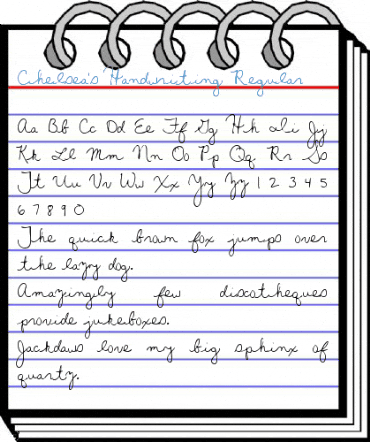 Chelsea's Handwriting Regular
Aa Bb Cc Dd Ee Ff Gg Hh Ii Jj
Kk Ll Mm Nn Oo Pp Qq Rr Ss
Tt Uu Vv Ww Xx Yy Zz 1 2 3 4 5
6 7 8 9 0
The quick brown fox jumps over
the lazy dog.
Amazingly few discotheques
provide jukeboxes.
Jackdaws love my big sphinx of
quartz.